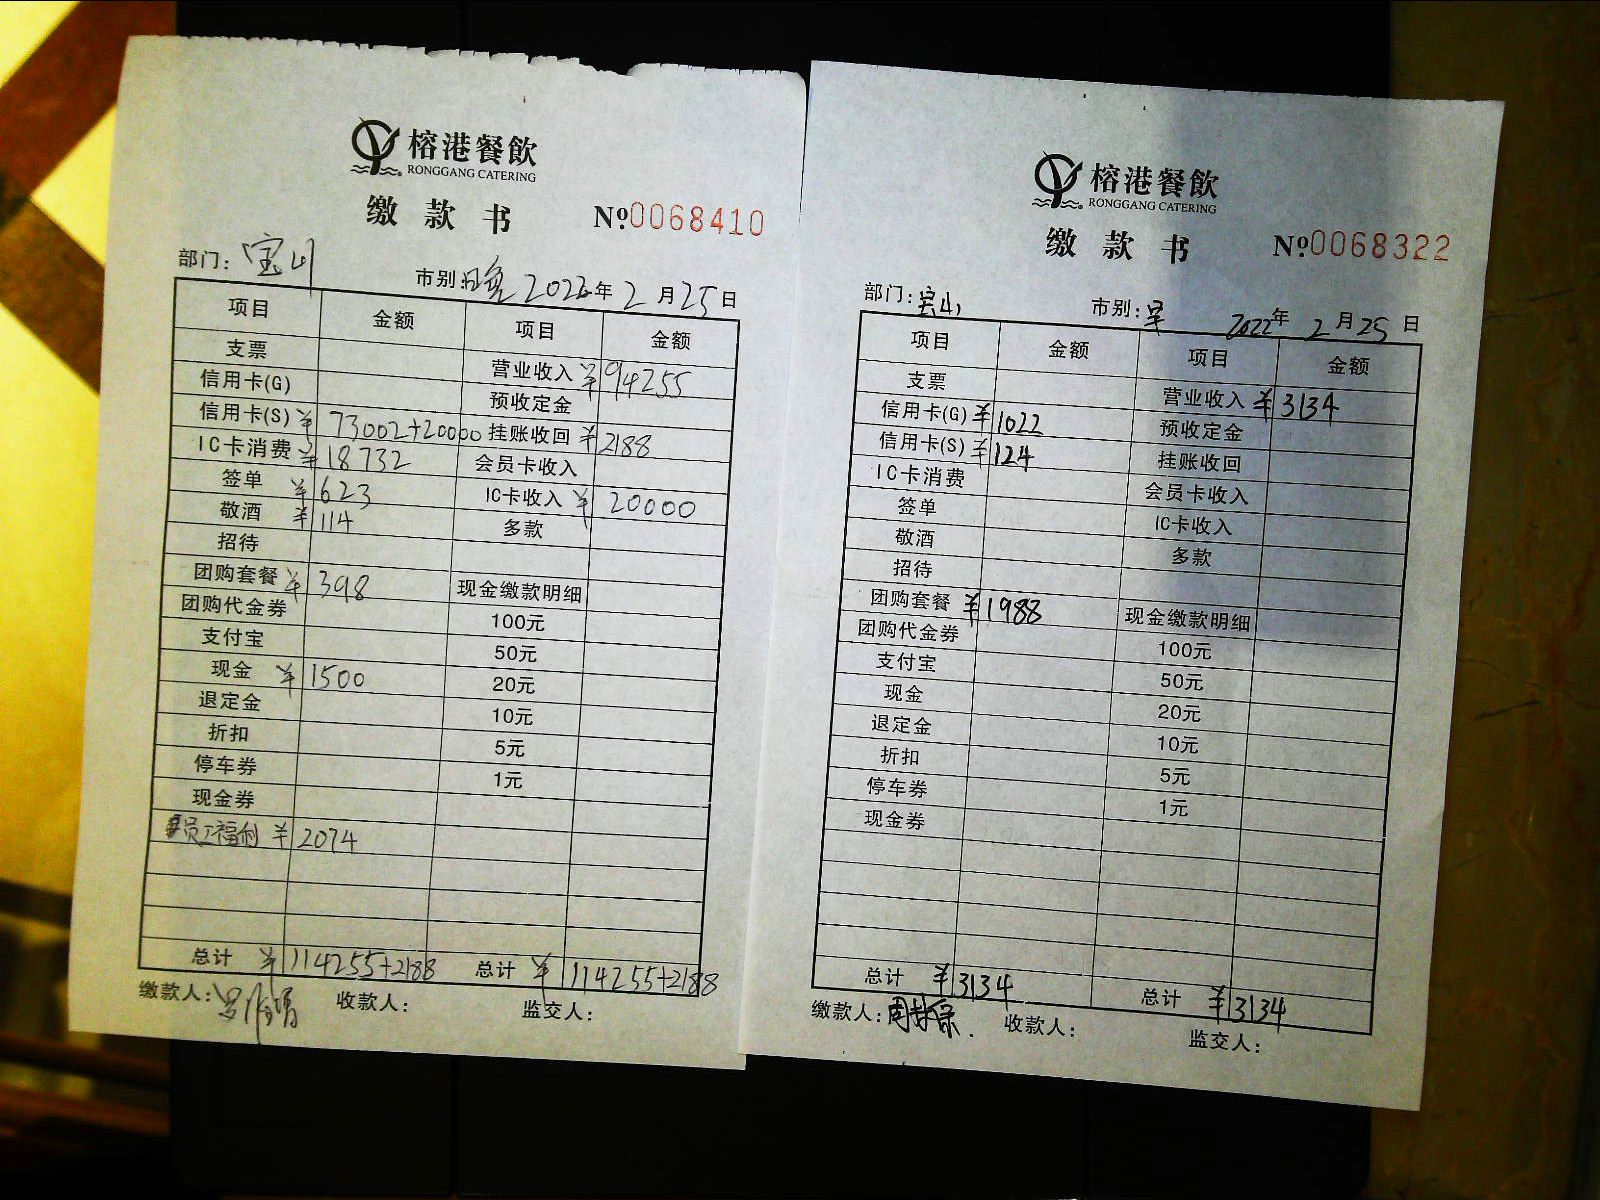 榕港餐飲
RONGGANG CATERING
缴款书 №0068410
部门: 宝山 市别: 晚 2022年 2月25日
项目 金额 项目 金额
支票 营业收入 ¥94255
信用卡(G) 预收定金
信用卡(S) ¥73002+20000 挂账收回 ¥2188
IC卡消费 ¥18732 会员卡收入
签单 ¥623 IC卡收入 ¥20000
敬酒 ¥114 多款
招待
团购套餐 ¥398 现金缴款明细
团购代金券 100元
支付宝 50元
现金 ¥1500 20元
退定金 10元
折扣 5元
停车券 1元
现金券
员工福利 ¥2074
总计 ¥114255+2188 总计 ¥114255+2188
缴款人: 收款人: 监交人:
榕港餐飲
RONGGANG CATERING
缴款书 №0068322
部门: 宝山 市别: 早 2022年 2月25日
项目 金额 项目 金额
支票 营业收入 ¥3134
信用卡(G) ¥1022 预收定金
信用卡(S) ¥124 挂账收回
IC卡消费 会员卡收入
签单 IC卡收入
敬酒 多款
招待
团购套餐 ¥1988 现金缴款明细
团购代金券 100元
支付宝 50元
现金 20元
退定金 10元
折扣 5元
停车券 1元
现金券
总计 ¥3134 总计 ¥3134
缴款人: 收款人: 监交人: